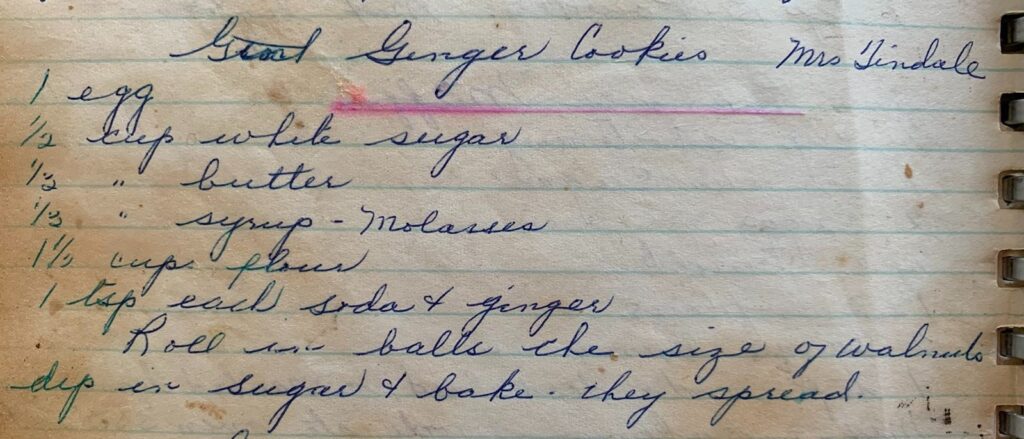 Ginger Cookies Mrs Tindale
1 egg
1/2 cup white sugar
1/3 " butter
1/3 " syrup - Molasses
cup flour
1 tsp each soda & ginger
Roll in balls the size of walnuts
dip in sugar & bake. they spread.